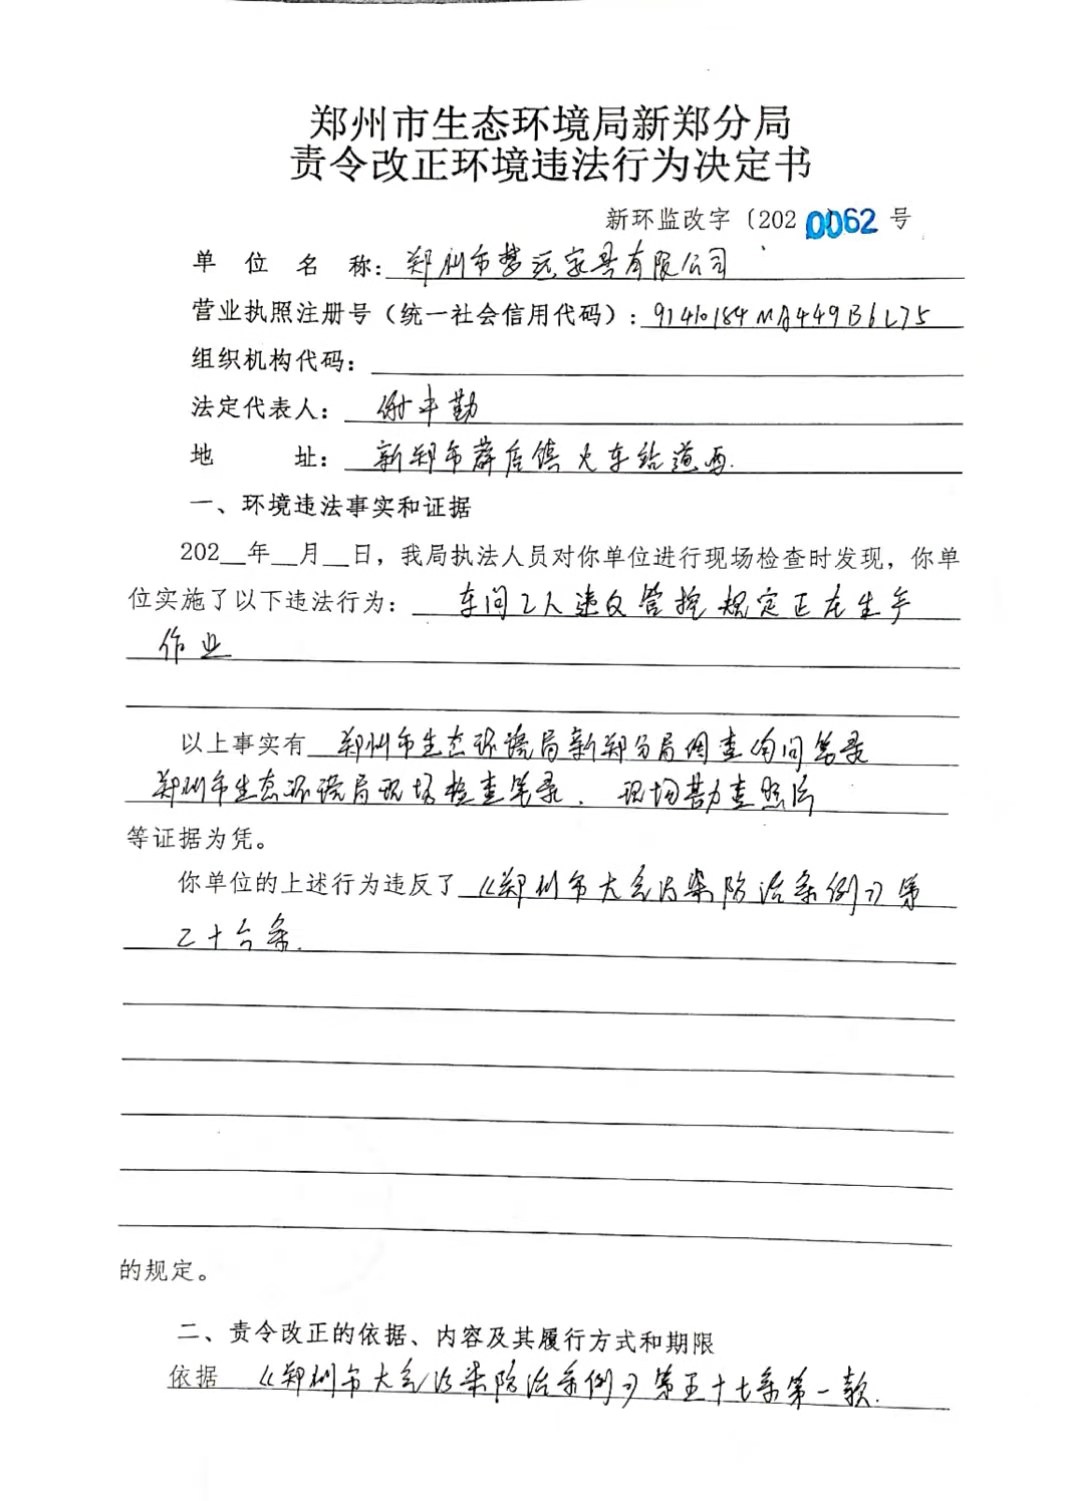 郑州市生态环境局新郑分局
责令改正环境违法行为决定书
新环监改字〔202 0062 号
单位名称：郑州市梦远家具有限公司
营业执照注册号（统一社会信用代码）：91410184MA449B6L75
组织机构代码：
法定代表人：谢丰勤
地址：新郑市薛店镇火车站道西.
一、环境违法事实和证据
202__年__月__日，我局执法人员对你单位进行现场检查时发现，你单
位实施了以下违法行为：车间工人违反管控规定正在生产
作业
以上事实有 郑州市生态环境局新郑分局调查询问笔录
郑州市生态环境局现场检查笔录、现场勘查照片
等证据为凭。
你单位的上述行为违反了《郑州市大气污染防治条例》第
二十六条.
的规定。
二、责令改正的依据、内容及其履行方式和期限
依据《郑州市大气污染防治条例》第五十七条第一款.